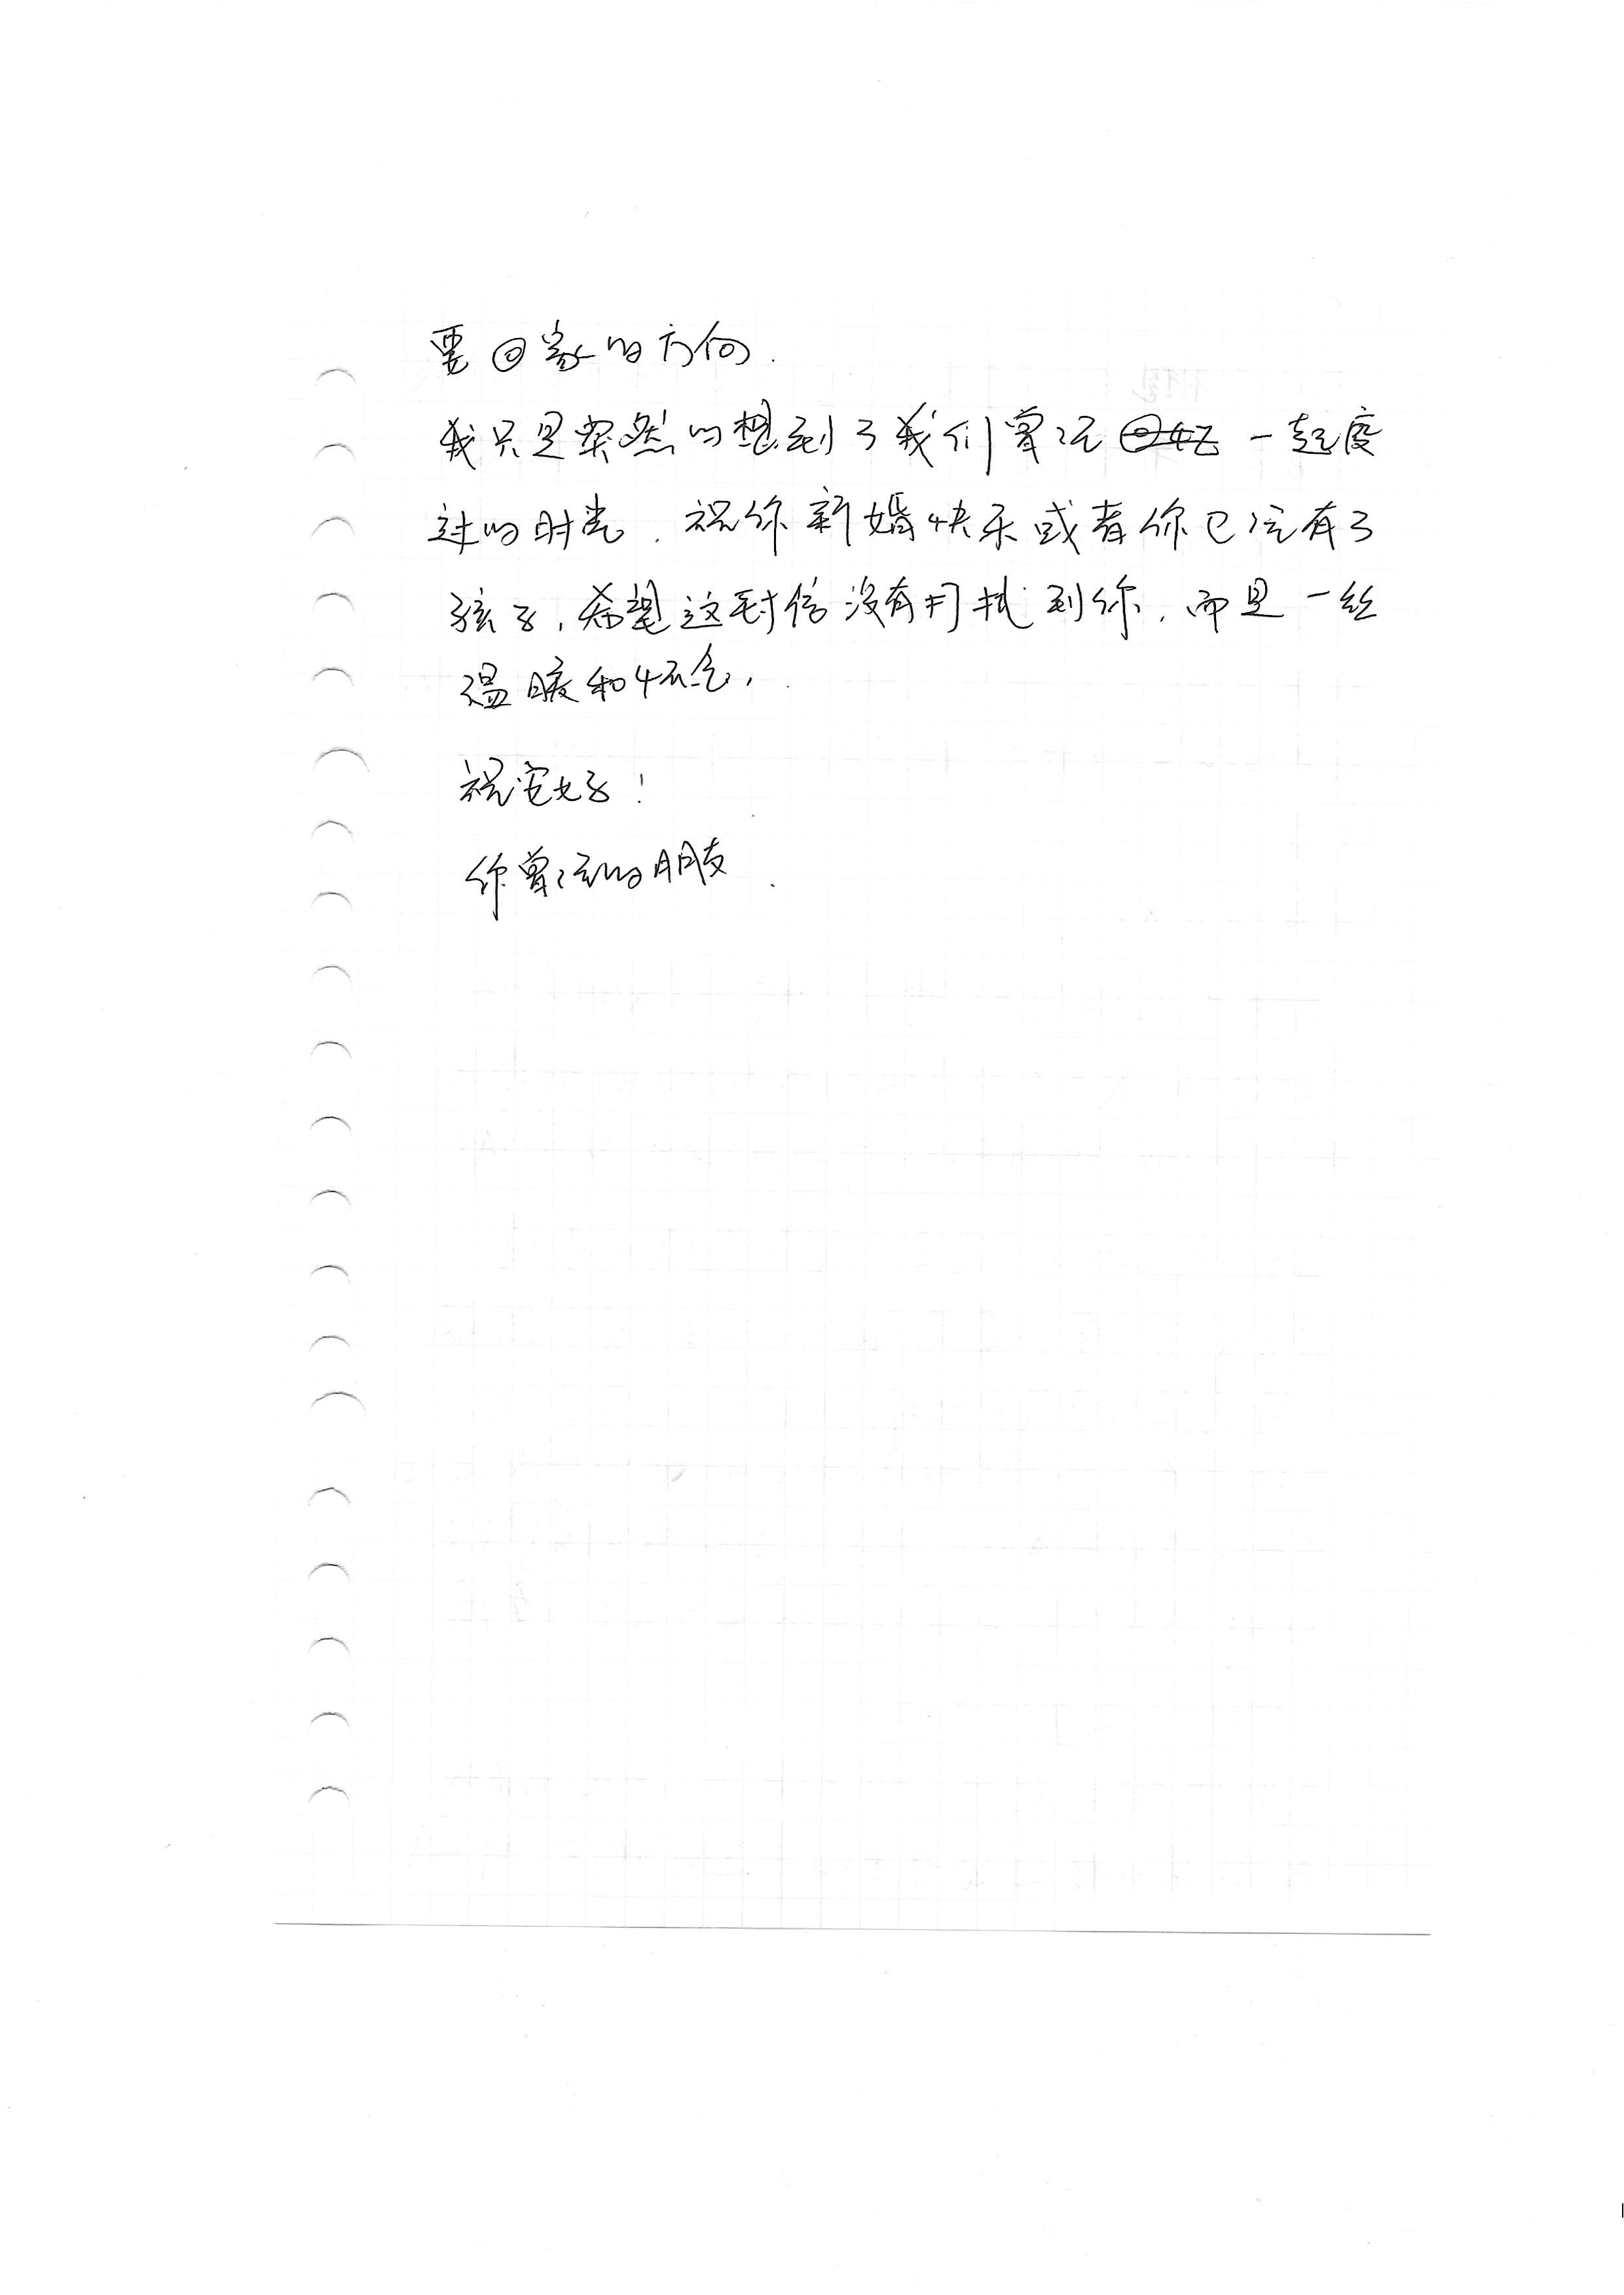 要回家的方向.
我只是突然的想到了我们曾经一起度
过的时光. 祝你新婚快乐或者你已经有了
孩子,希望这封信没有打扰到你,而是一丝
温暖和怀念,
祝安好!
你曾经的朋友.